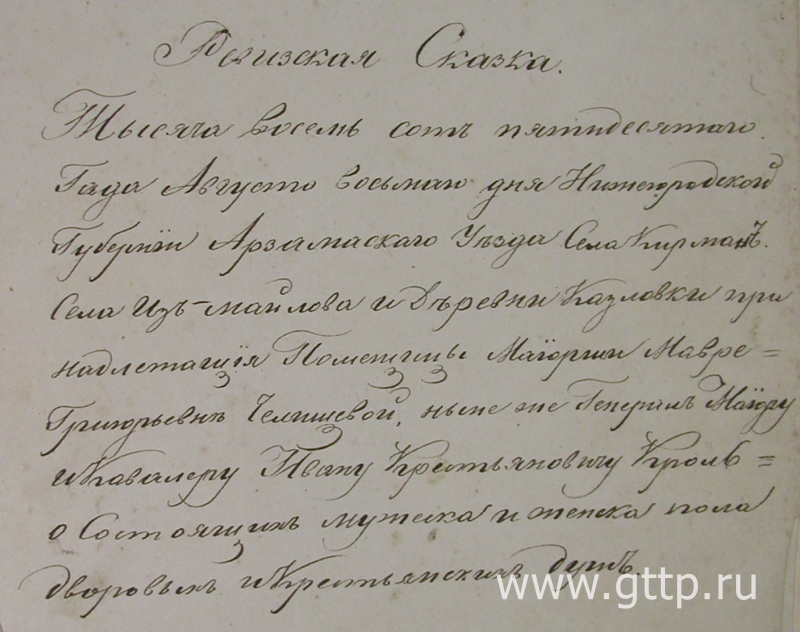 Ревизская Сказка.
Тысяча восемь сотъ пятидесятаго.
Года Августо восьмаго дня Нижегородской
Губернїи Арзамаскаго Уѣзда Села Кирманъ.
Села Изъ-майлова и Дѣревни Казловки при
надлежащїя Помещицы Маїорши Мавре=
Григорьевнѣ Челищевой, ныне же Генералъ Маїору
и Кавалеру Ивану Крестьяновичу Кроль=
о Состоящихъ мужеска и женска пола
дворовыхъ и Крестьянскихъ душъ.
www.gttp.ru